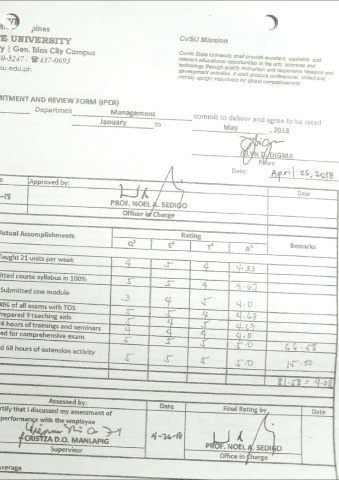 pines
E UNIVERSITY
y | Gen. Trias City Campus
0-5247: ☎437-0693
su.edu.ph
CvSU Mission
Cavite State University shall provide excellent, equitable and
relevant educational opportunities in the arts, sciences and
technology through quality instruction and responsive research and
development activities. It shall produce professional, skilled and
morally upright individuals for global competitiveness
MITMENT AND REVIEW FORM (IPCR)
Departmen Management commit to deliver and agree to be rated
January to May , 2018
DIGMA
Ratee
Date: April 25, 2018
Approved by: Date
PROF. NOEL A. SEDIGO
Officer in Charge
Actual Accomplishments Rating Remarks
Q¹ E² T³ A⁴
Taught 21 units per week 4 5 4 4.33
itted course syllabus in 100% 5 5 4 4.67
Submitted one module 3 4 5 4.0
00% of all exams with TOS 5 5 4 4.67
Prepared 9 teaching aids 5 4 5 4.67
4 hours of trainings and seminars 4 4 4 4.0
ed for comprehensive exam 5 5 5 5.0 66.58
d 68 hours of extension activity 5 5 5 5.0 15.00
81.58 = 4.08
Assessed by: Date Final Rating by Date
rtify that I discussed my assessment of
performance with the employee
CRISTZA D.O. MANLAPIG 4-26-18 PROF. NOEL A. SEDIGO
Supervisor Office in Charge
verage